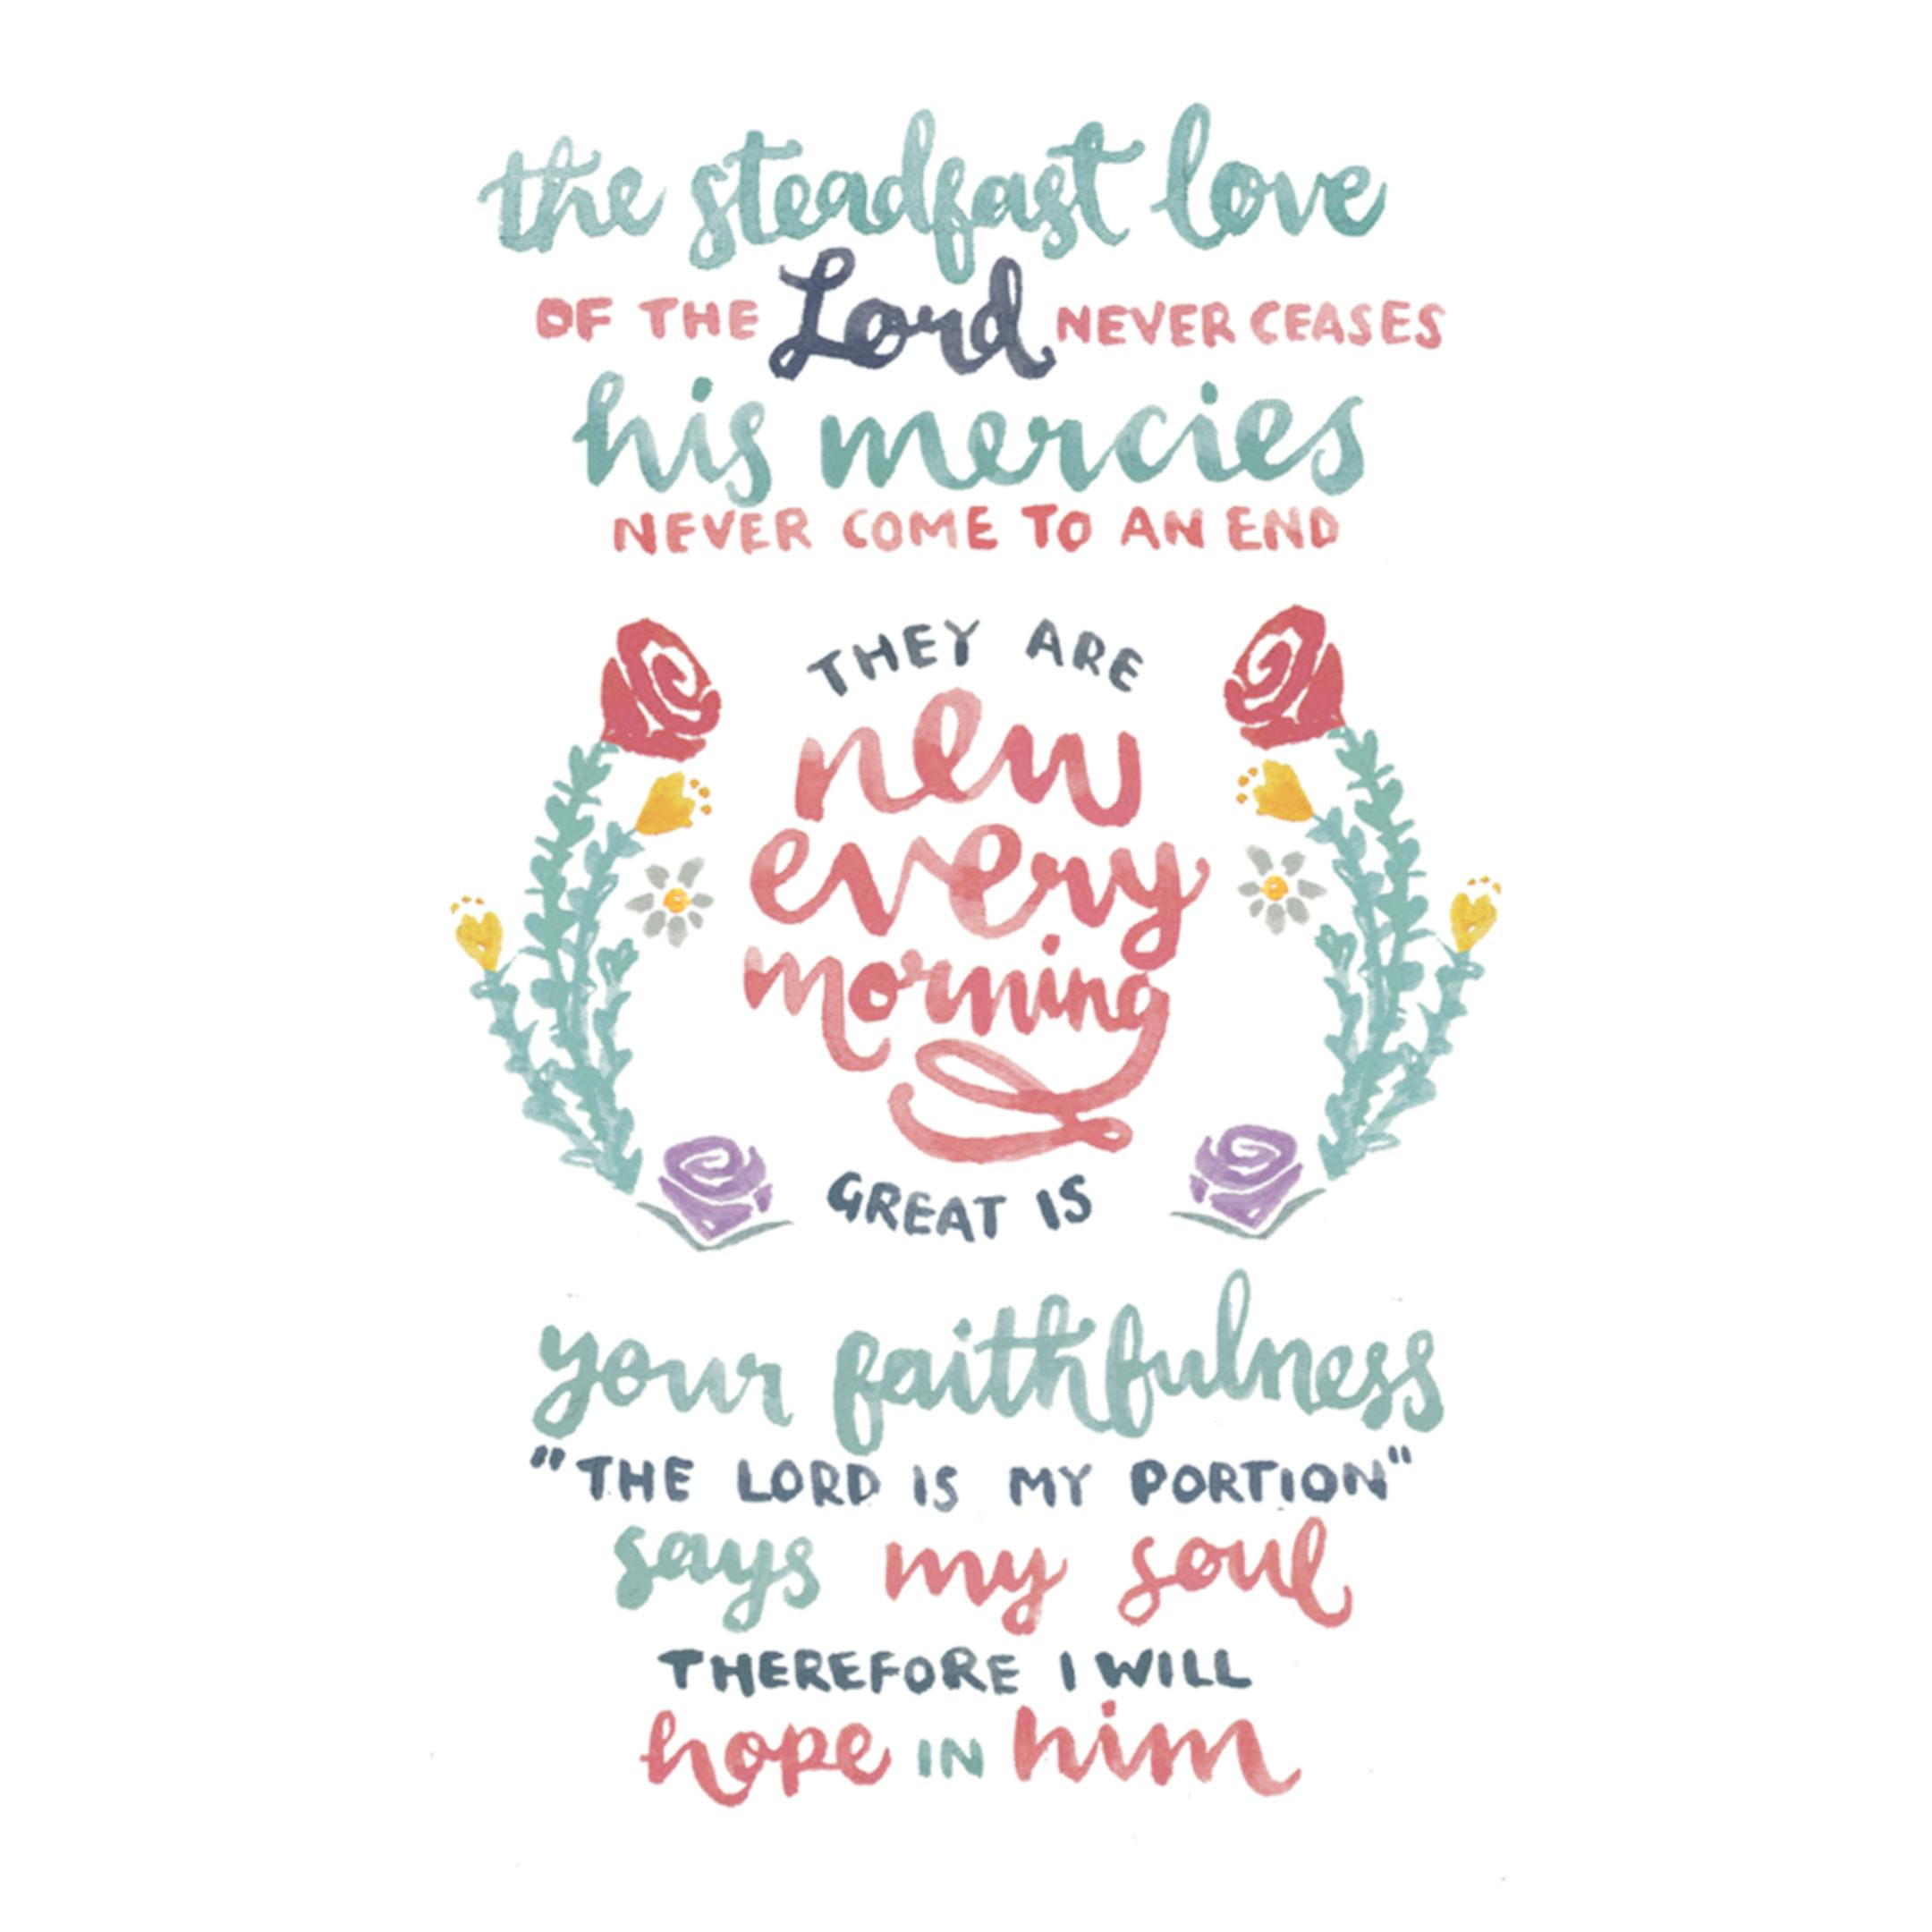 the steadfast love
OF THE Lord NEVER CEASES
his mercies
NEVER COME TO AN END
THEY ARE
new
every
morning
GREAT IS
your faithfulness
"THE LORD IS MY PORTION"
says my soul
THEREFORE I WILL
hope IN him